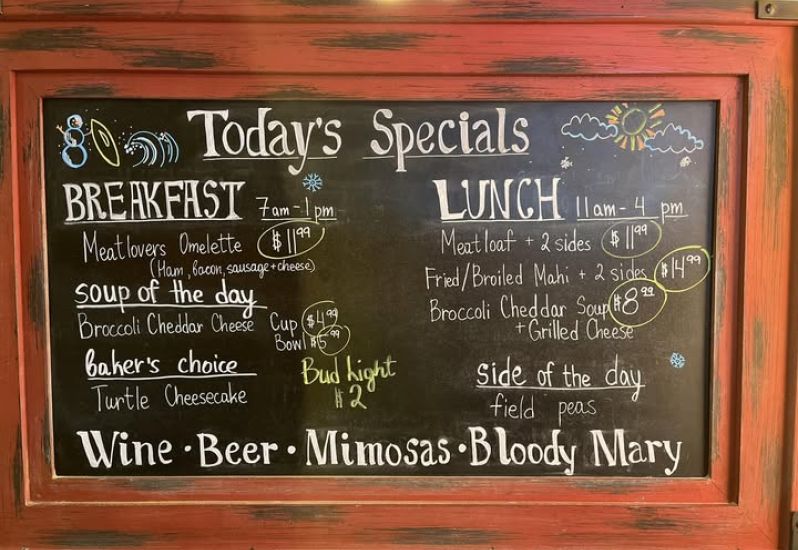 Today's Specials
BREAKFAST 7am-1pm
Meatlovers Omelette $11.99
(Ham, bacon, sausage + cheese)
soup of the day
Broccoli Cheddar Cheese Cup $4.99
Bowl $5.99
baker's choice
Turtle Cheesecake
Bud Light
$2
LUNCH 11am-4pm
Meatloaf + 2 sides $11.99
Fried/Broiled Mahi + 2 sides $14.99
Broccoli Cheddar Soup $8.99
+ Grilled Cheese
side of the day
field peas
Wine • Beer • Mimosas • Bloody Mary